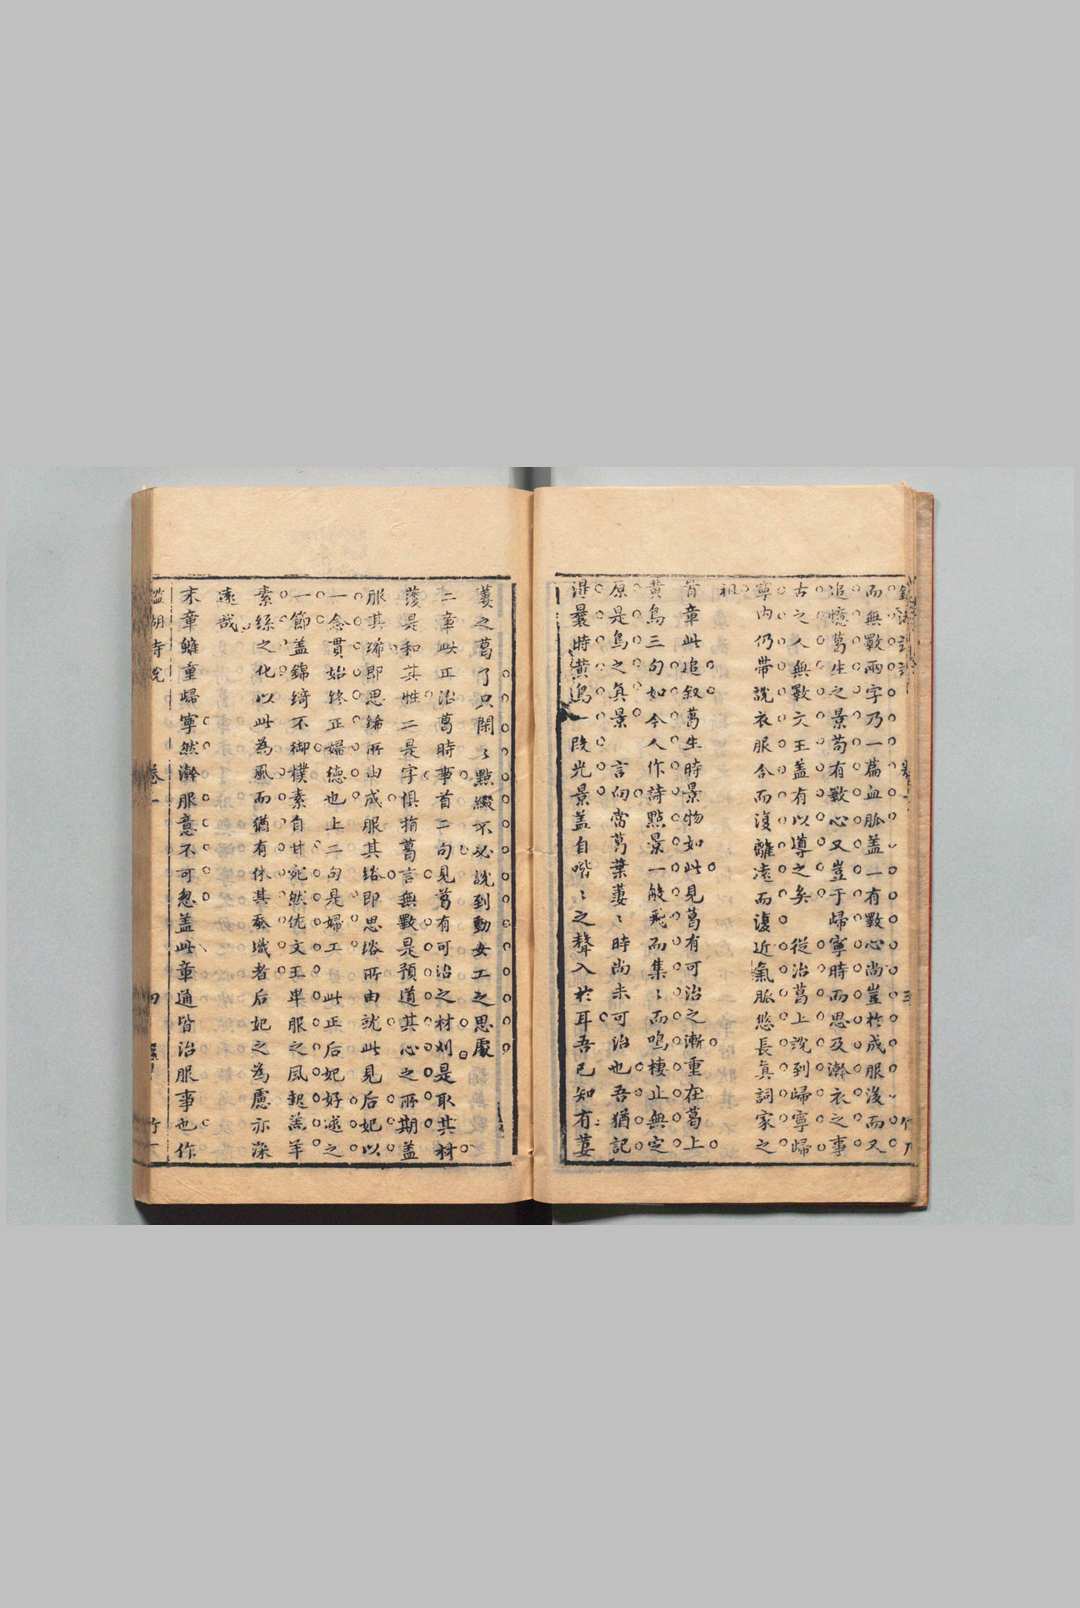 而無斁兩字乃一篇血脈蓋一有斁心尚豈於成服後而又
追憶葛生之景苟有斁心又豈于歸寧時而思及澣衣之事
古之人無斁文王蓋有以導之矣從治葛上說到歸寧歸
寧內仍帶說衣服合而復離遠而復近氣脈悠長真詞家之
祖
首章此追叙葛生時景物如此見葛有可治之漸重在葛上
黃鳥三句如今人作詩點景一般飛而集集而鳴棲止無定
原是鳥之真景言向當葛葉萋萋時尚未可治也吾猶記
得曩時黃鳥一段光景蓋自喈喈之聲入於耳吾已知有萋
萋之葛了只閑閑點綴不必說到動女工之思處
二章此正治葛時事首二句見葛有可治之材刈是取其材
濩是和其性二是字俱指葛言無斁是預道其心之所期蓋
服其絺即思絺所由成服其綌即思綌所由就此見后妃以
一念貫始終正婦德也上二句是婦工此正后妃好逑之
一節蓋錦綺不御樸素自甘宛然佐文王卑服之風起羔羊
素絲之化以此為風而猶有休其蠶織者后妃之為慮亦深
遠哉
末章雖重歸寧然澣服意不可忽蓋此章通皆治服事也作
鑑湖詩說 卷一 四